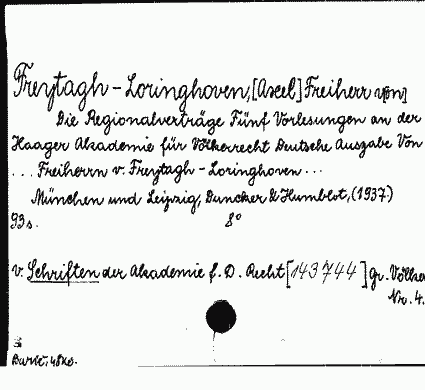 Freytagh-Loringhoven, [Axel] Freiherr v[on]
Die Regionalverträge Fünf Vorlesungen an der
Haager Akademie für Völkerrecht Deutsche Ausgabe Von
... Freiherrn v. Freytagh-Loringhoven ...
München und Leipzig, Duncker & Humblot, (1937.)
93 s. 8°
v. Schriften der Akademie f. D. Recht [143744] gr. Völker
Nr. 4.